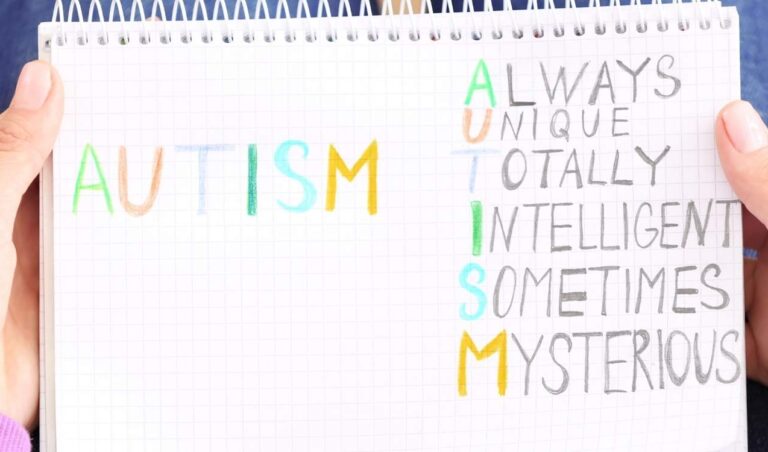 AUTISM
ALWAYS
UNIQUE
TOTALLY
INTELLIGENT
SOMETIMES
MYSTERIOUS